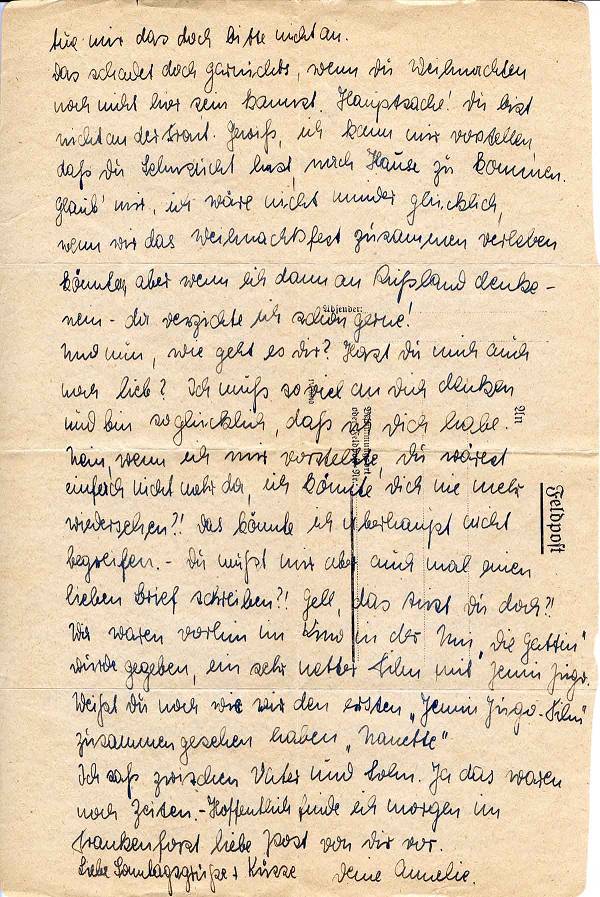 tue mir das doch bitte nicht an.
Das schadet doch garnichts, wenn Du Weihnachten
noch nicht hier sein kannst. Hauptsache! Du bist
nicht an der Front. Gewiß, ich kann mir vorstellen,
daß Du Sehnsucht hast, nach Hause zu kommen.
Glaub' mir, ich wäre nicht minder glücklich,
wenn wir das Weihnachtsfest zusammen verleben
könnten, aber wenn ich dann an Rußland denke -
nein - da verzichte ich schon gerne!
Absender:
Und nun, wie geht es Dir? Hast Du mich auch
noch lieb? Ich muß so viel an Dich denken
und bin so glücklich, daß ich Dich habe.
Nein, wenn ich mir vorstellte, Du wärest
einfach nicht mehr da, ich könnte Dich nie mehr
wiedersehen?! Das könnte ich überhaupt nicht
begreifen. - Du mußt mir aber auch mal einen
lieben Brief schreiben?! Gell, das tust Du doch?!
Wir waren vorhin im Kino in der "Die Gattin"
wurde gegeben, ein sehr netter Film mit Jenny Jugo.
Weißt Du noch wie wir den ersten "Jenny Jugo-Film"
zusammen gesehen haben "Nanette"
Ich saß zwischen Vater und Sohn. Ja das waren
noch Zeiten. - Hoffentlich finde ich morgen im
Frankenforst liebe Post von Dir vor.
Liebe Sonntagsgrüße + Küsse Deine Annelie.
An
Feldpost